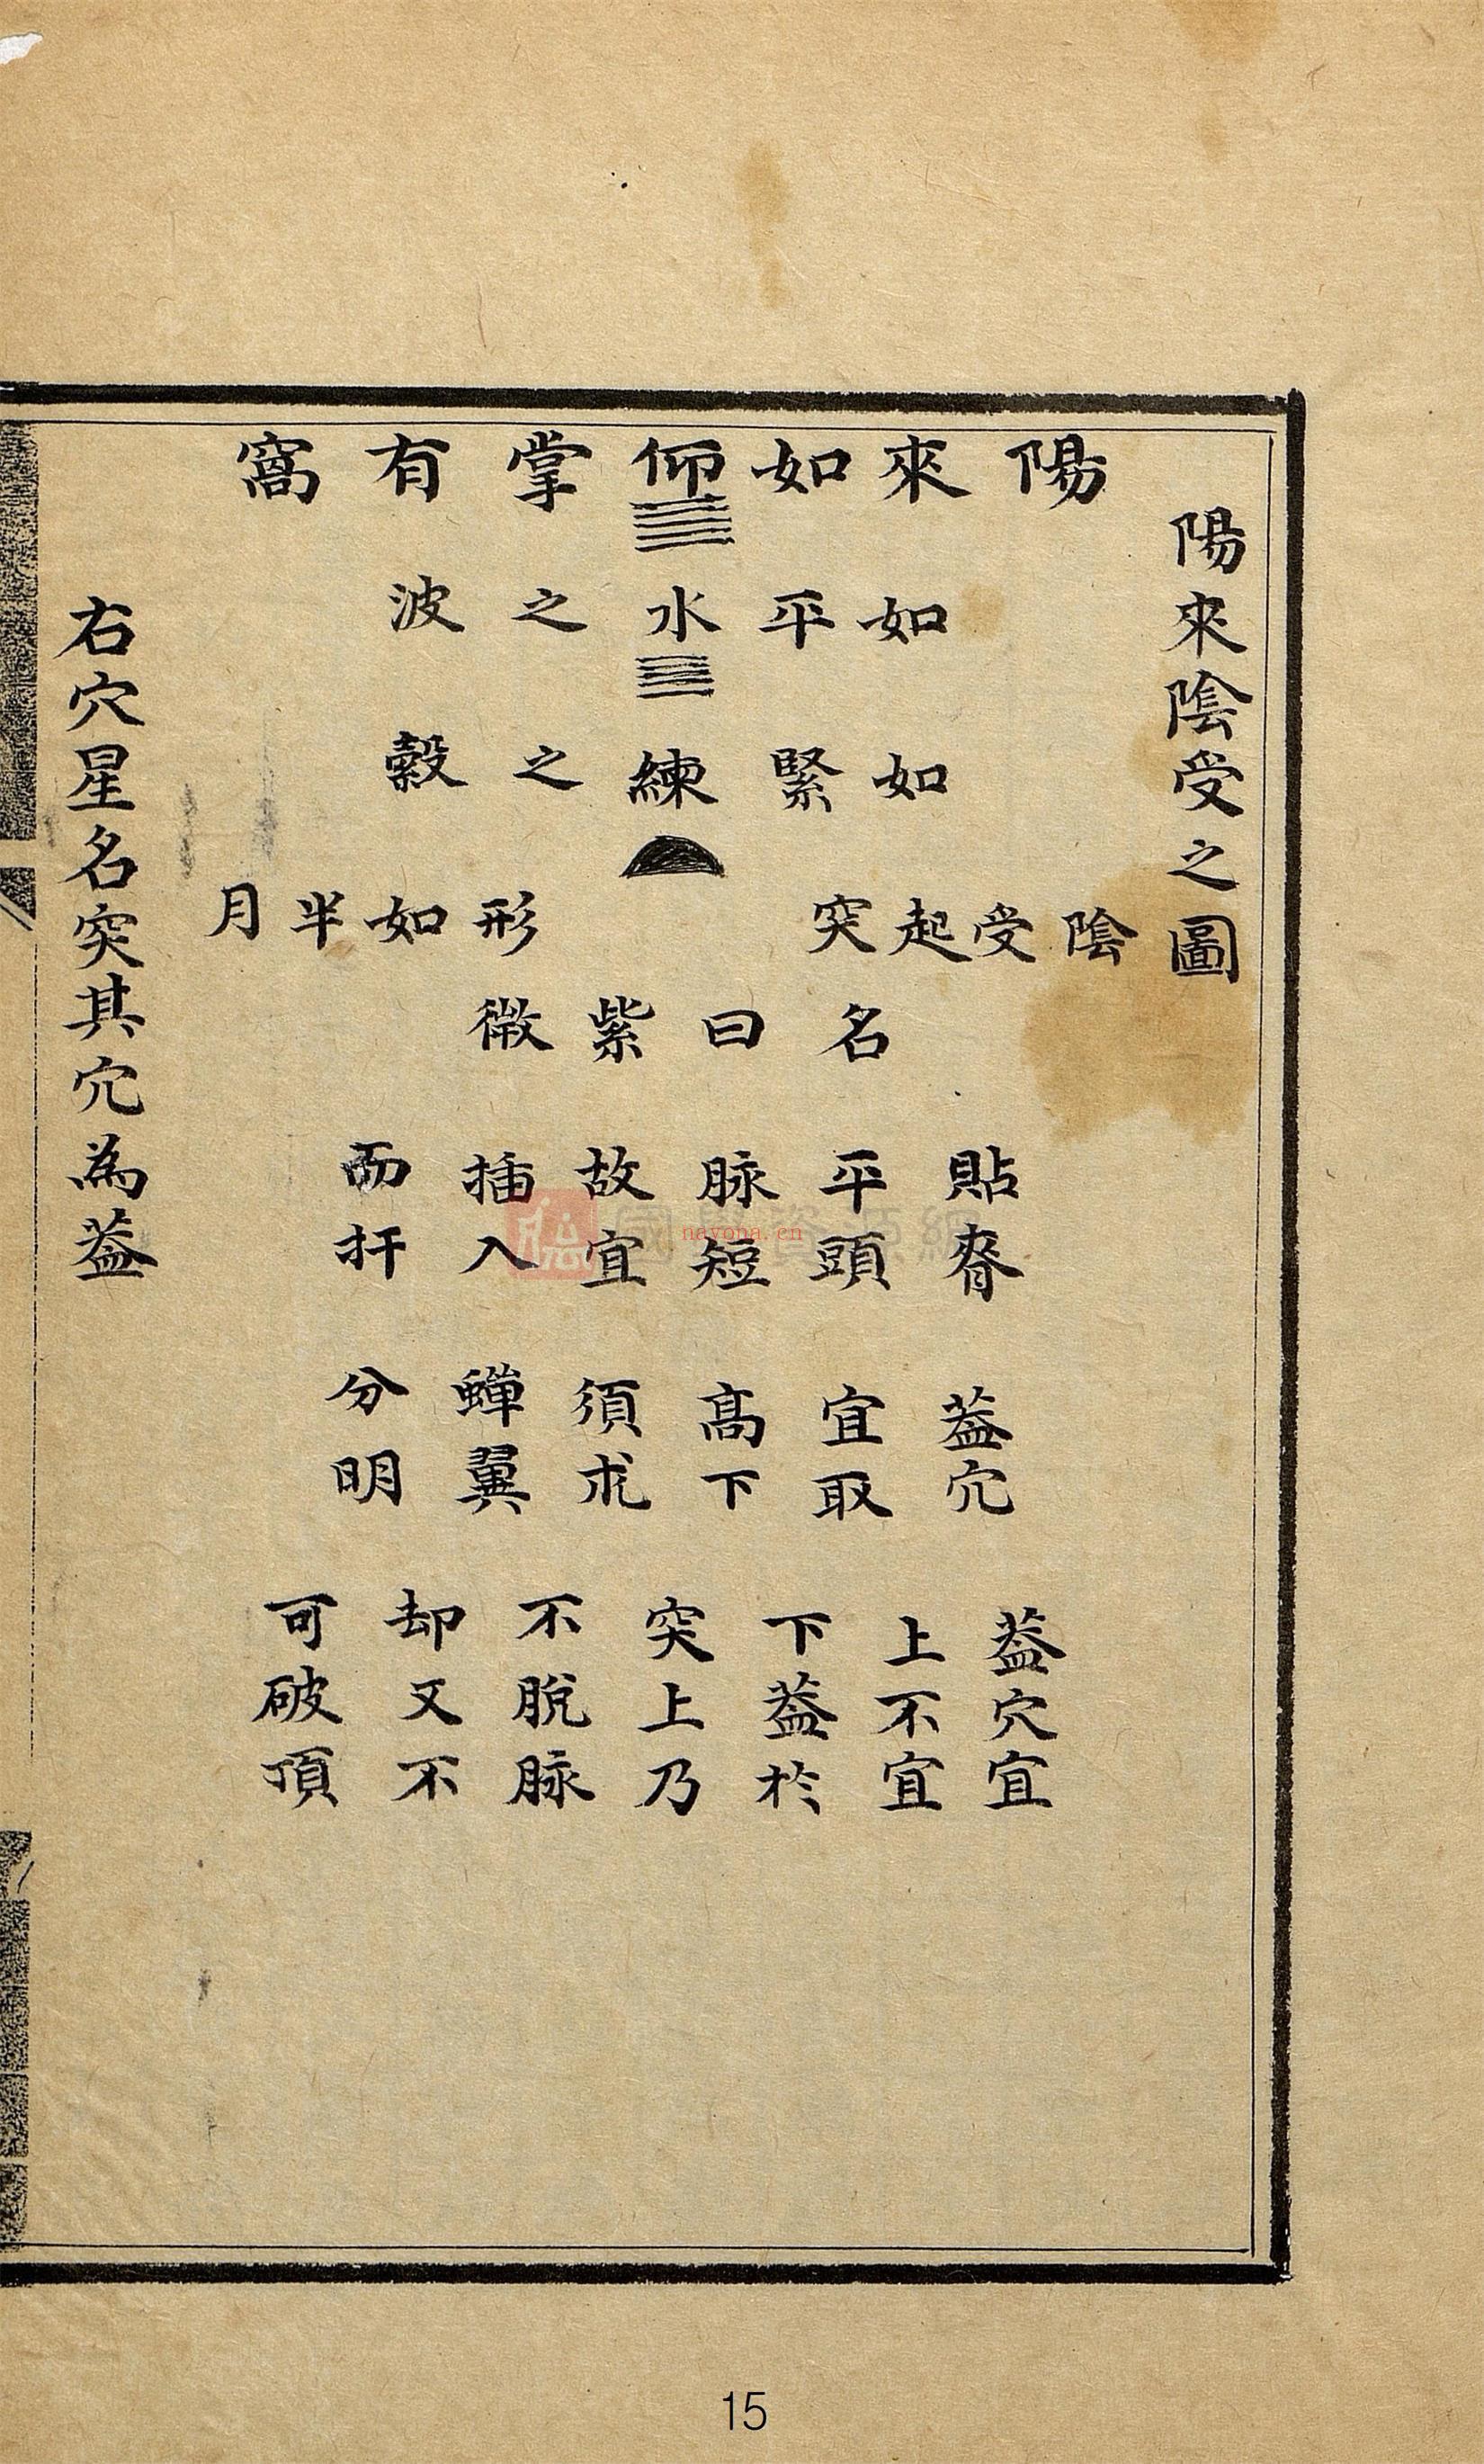 陽來陰受之圖
陽來如仰掌有窩
如平水之波
如緊練之縠
陰受起突
形如半月
名曰紫微
貼脊平頭脉短故宜插入而扞
蓋穴宜取高下須求蟬翼分明
蓋穴宜上不宜下蓋於突上乃不脫脉却又不可破頂
右穴星名突其穴為蓋
國學資源網
nayona.cn
15